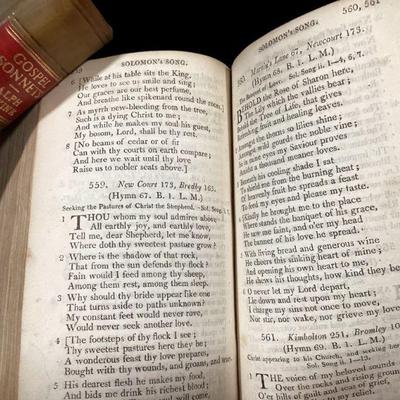 GOSPEL
SONNETS
SOLOMON'S SONG.
6 [While at his table sits the King,
He loves to see us smile and sing
Our graces are our best perfume,
And breathe like spikenard round the room.
7 As myrrh new-bleeding from the tree,
Such is a dying Christ to me;
And while he makes my soul his guest,
My bosom, Lord, shall be thy rest.
8 [No beams of cedar or of fir
Can with thy courts on earth compare;
And here we wait until thy love
Raise us to nobler seats above.]
559. New Court 173, Bredby 165.
(Hymn 67. B. I. L. M.)
Seeking the Pastures of Christ the Shepherd. Sol. Song i.
1 THOU whom my soul admires above
All earthly joy, and earthly love,
Tell me, dear Shepherd, let me know,
Where doth thy sweetest pasture grow?
2 Where is the shadow of that rock,
That from the sun defends thy flock?
Fain would I feed among thy sheep,
Among them rest, among them sleep.
3 Why should thy bride appear like one
That turns aside to paths unknown?
My constant feet would never rove,
Would never seek another love.
4 [The footsteps of thy flock I see;
Thy sweetest pastures here they be;
A wonderful feast thy love prepares,
Bought with thy wounds, and groans,
5 His dearest flesh he makes my food,
And bids me drink his richest blood:
SOLOMON'S SONG. 560, 561
Martin's Lane 67. Newcourt 173.
(Hymn 68. B. I. L. M.)
of Love. Sol. Song ii. 1—4, 6, 7.
BEHOLD the Rose of Sharon here,
the Tree of Life, that gives
healing fruit and healing leaves.
Amongst the thorns so lilies shine;
Amongst wild gourds the noble vine;
So in mine eyes my Saviour proves
Amidst a thousand meaner loves.
Beneath his cooling shade I sat
To shield me from the burning heat;
Of heavenly fruit he spreads a feast
To feed my eyes and please my taste.
[Kindly he brought me to the place
Where stands the banquet of his grace,
He saw me faint, and o'er my head
The banner of his love he spread.
5 With living bread and generous wine
He cheers this sinking heart of mine;
And opening his own heart to me,
He shows his thoughts, how kind they be
6 O never let my Lord depart,
Lie down and rest upon my heart;
I charge my sins not once to move,
Nor stir, nor wake, nor grieve my love
561. Kimbolton 251. Bromley
(Hymn 69. B. I. L. M.)
Christ appearing to his Church, and seeking her
Sol. Song ii.
THE voice of my beloved sounds
Over the rocks and rising grounds